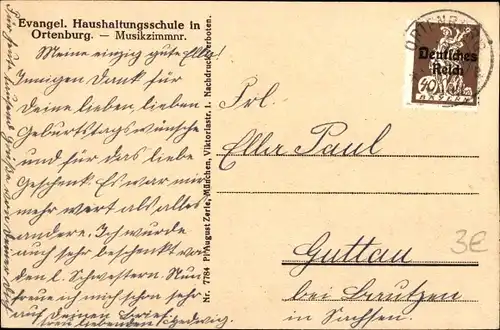 Evangel. Haushaltungsschule in
Ortenburg. — Musikzimmnr.
Meine einzig gute Ella!
Innigen Dank für
Deine lieben, lieben
Geburtstagswünsche
und für das liebe
Geschenk. Es war mir
mehr wert als alles
andere. Ich wurde
auch sehr beschenkt von
den l. Schwestern. Nun
freue ich mich schon sehr
auf Deinen Brief.
Hedwig.
Nr. 7784 P. August Zerle, München, Viktoriastr. 1. Nachdruck verboten.
ORTENBURG
Deutsches
Reich
40
BAYERN
Frl.
Ella Paul
Guttau
bei Bautzen
in Sachsen.
3E